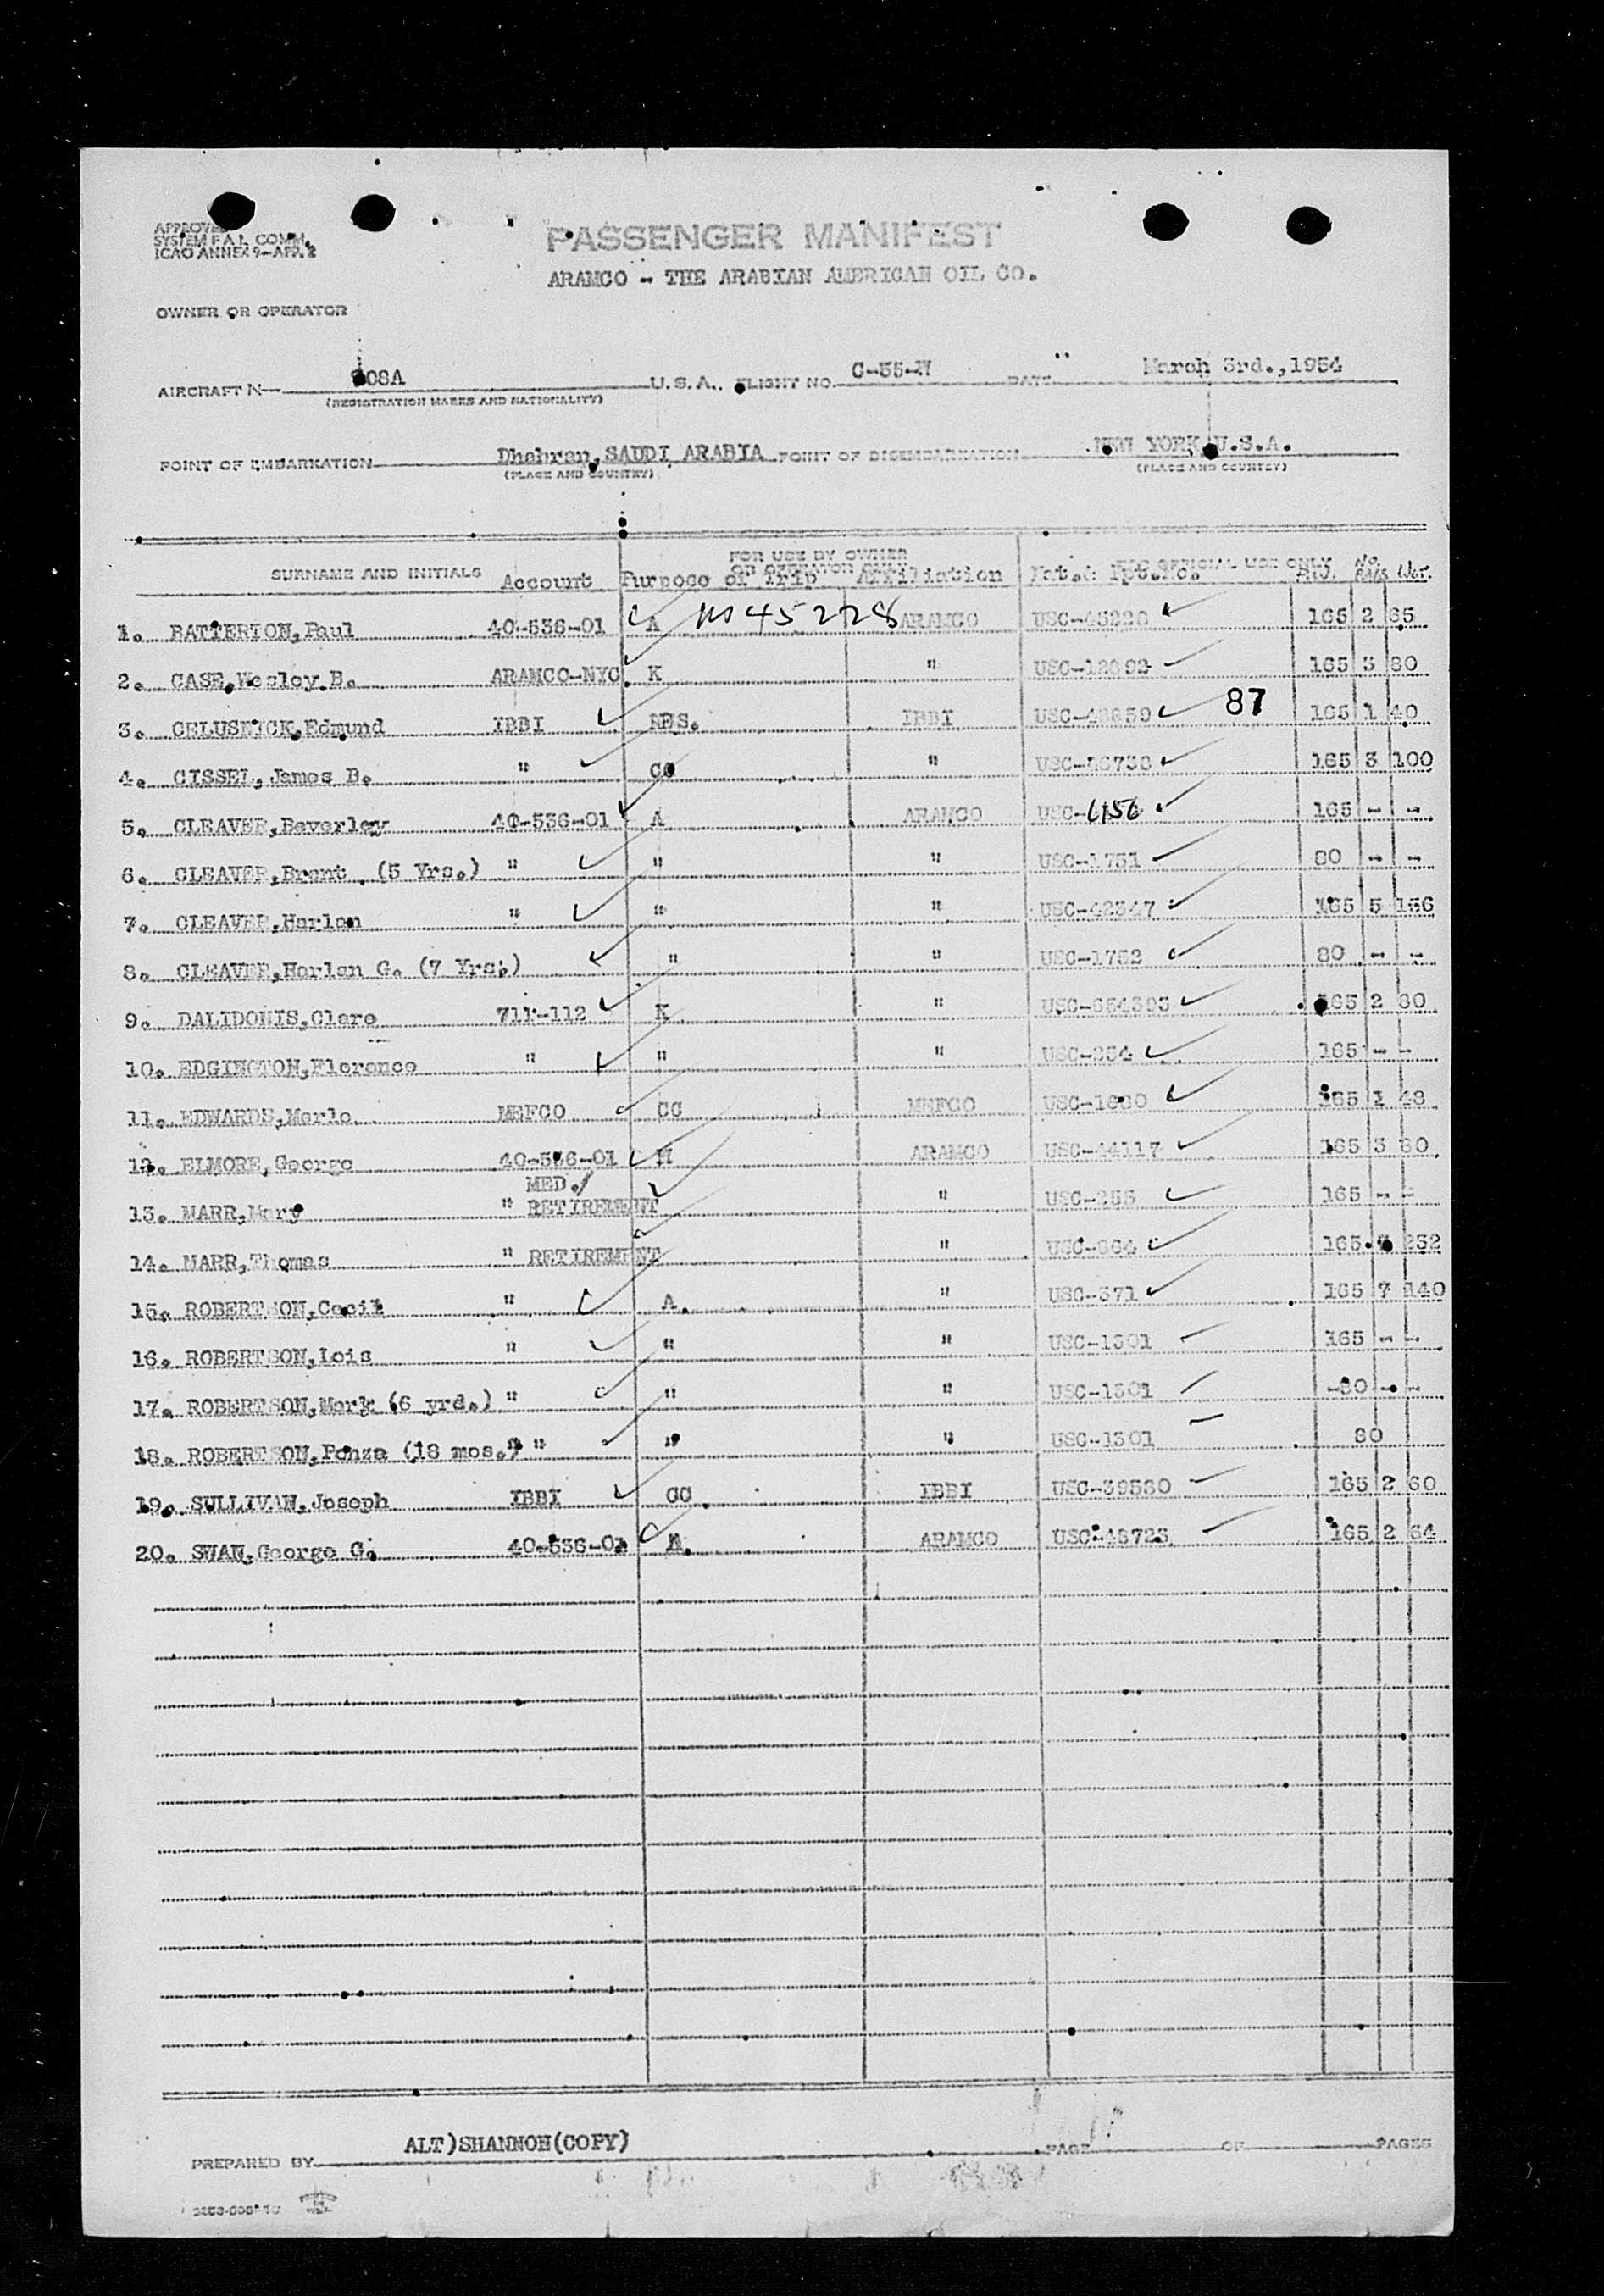 APPROVED
SYSTEM F.A.L. COMM.
ICAO ANNEX 9-APP. 2
PASSENGER MANIFEST
ARAMCO - THE ARABIAN AMERICAN OIL CO.
OWNER OR OPERATOR
AIRCRAFT N 08A U.S.A. FLIGHT NO. DATE March 3rd.,1954
(REGISTRATION MARKS AND NATIONALITY)
POINT OF EMBARKATION Dhahran,SAUDI ARABIA POINT OF DISEMBARKATION NEW YORK,U.S.A.
(PLACE AND COUNTRY) (PLACE AND COUNTRY)
FOR USE BY OWNER OR OPERATOR ONLY FOR OFFICIAL USE ONLY
SURNAME AND INITIALS Account Purpose of Trip Affiliation
1. BATTERTON,Paul 40-536-01 A 45228 ARAMCO USC-45228 165 2 65
2. CASE,Wesley B. ARAMCO-NYC. K " 165 3 80
3. Edmund IBBI RES. IBBI 87 165 1 40
4. CISSEL,James B. " " 165 3 100
5. CLEAVER,Beverley 40-536-01 A ARAMCO USC-6156 165 - -
6. CLEAVER,Brent (5 Yrs.) " " " USC-1751 80 - -
7. CLEAVER,Harlan " " " USC-42347 165 5 156
8. CLEAVER,Harlan G. (7 Yrs.) " " USC-1752 80 - -
9. DALIDONIS,Clare 711-112 K " 165 2 80
10. EDGINGTON,Florence " " " USC-254 165 - -
11. EDWARDS,Merle MEFCO CC MEFCO 165 1 48
12. ELMORE,George 40-536-01 ARAMCO USC-44117 165 3 80
13. MARR,Mary " MED./ RETIREMENT " USC-255 165 - -
14. MARR,Thomas " RETIREMENT " 165 232
15. ROBERTSON,Cecil " A. " USC-371 165 7 140
16. ROBERTSON,Lois " " " USC-1301 165 - -
17. ROBERTSON,Mark (6 yrd.) " " " USC-1301 -80 - -
18. ROBERTSON,Ponza (18 mos.) " " " USC-1301 80
19. SULLIVAN,Joseph IBBI CC. IBBI USC-39580 165 2 60
20. SWAN,George G. 40-536-01 ARAMCO 165 2 64
PREPARED BY ALT)SHANNON(COPY) PAGE OF PAGES